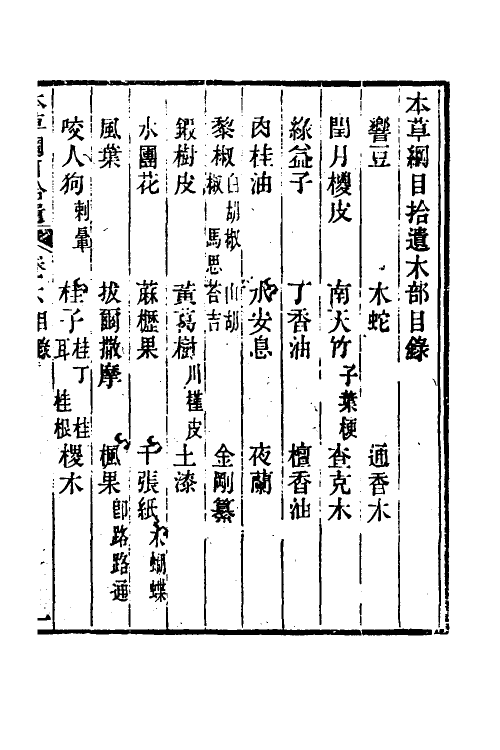 本草綱目拾遺木部目錄
響豆　木蛇　通香木
閏月椶皮　南天竹子葉梗　查克木
綠益子　丁香油　檀香油
肉桂油　水安息　夜蘭
黎椒白胡椒　山胡椒　馬思荅吉　金剛纂
鍛樹皮　黃葛樹川槿皮　土漆
水團花　蔴櫪果　千張紙木蝴蝶
風葉　拔爾撒摩　楓果卽路路通
咬人狗刺暈　桂子桂丁　桂耳　桂根　椶木